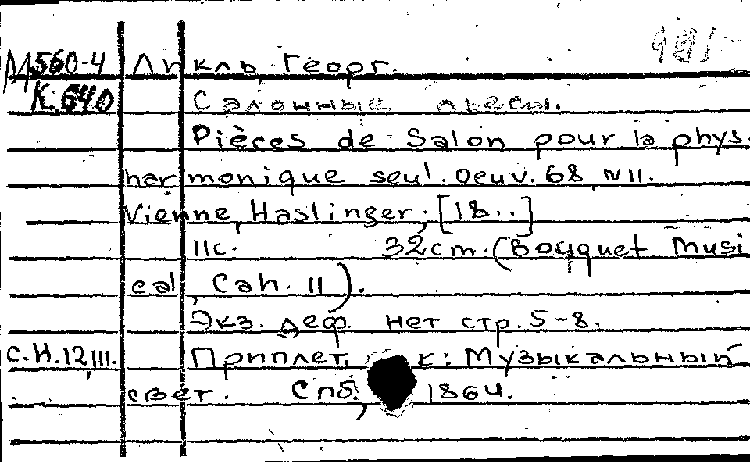 М560-4 Ликль, Георг.
К.640 Салонные пьесы.
Pièces de Salon pour la phys
harmonique seul. Oeuv. 68, N11.
Vienne, Haslinger, [18..]
11с. 32cm. (Bouquet musi
cal, Cah. 11).
Экз. деф. нет стр. 5-8.
С.Н.12,III. Приплет. к: Музыкальный
свет. Спб, 1864.